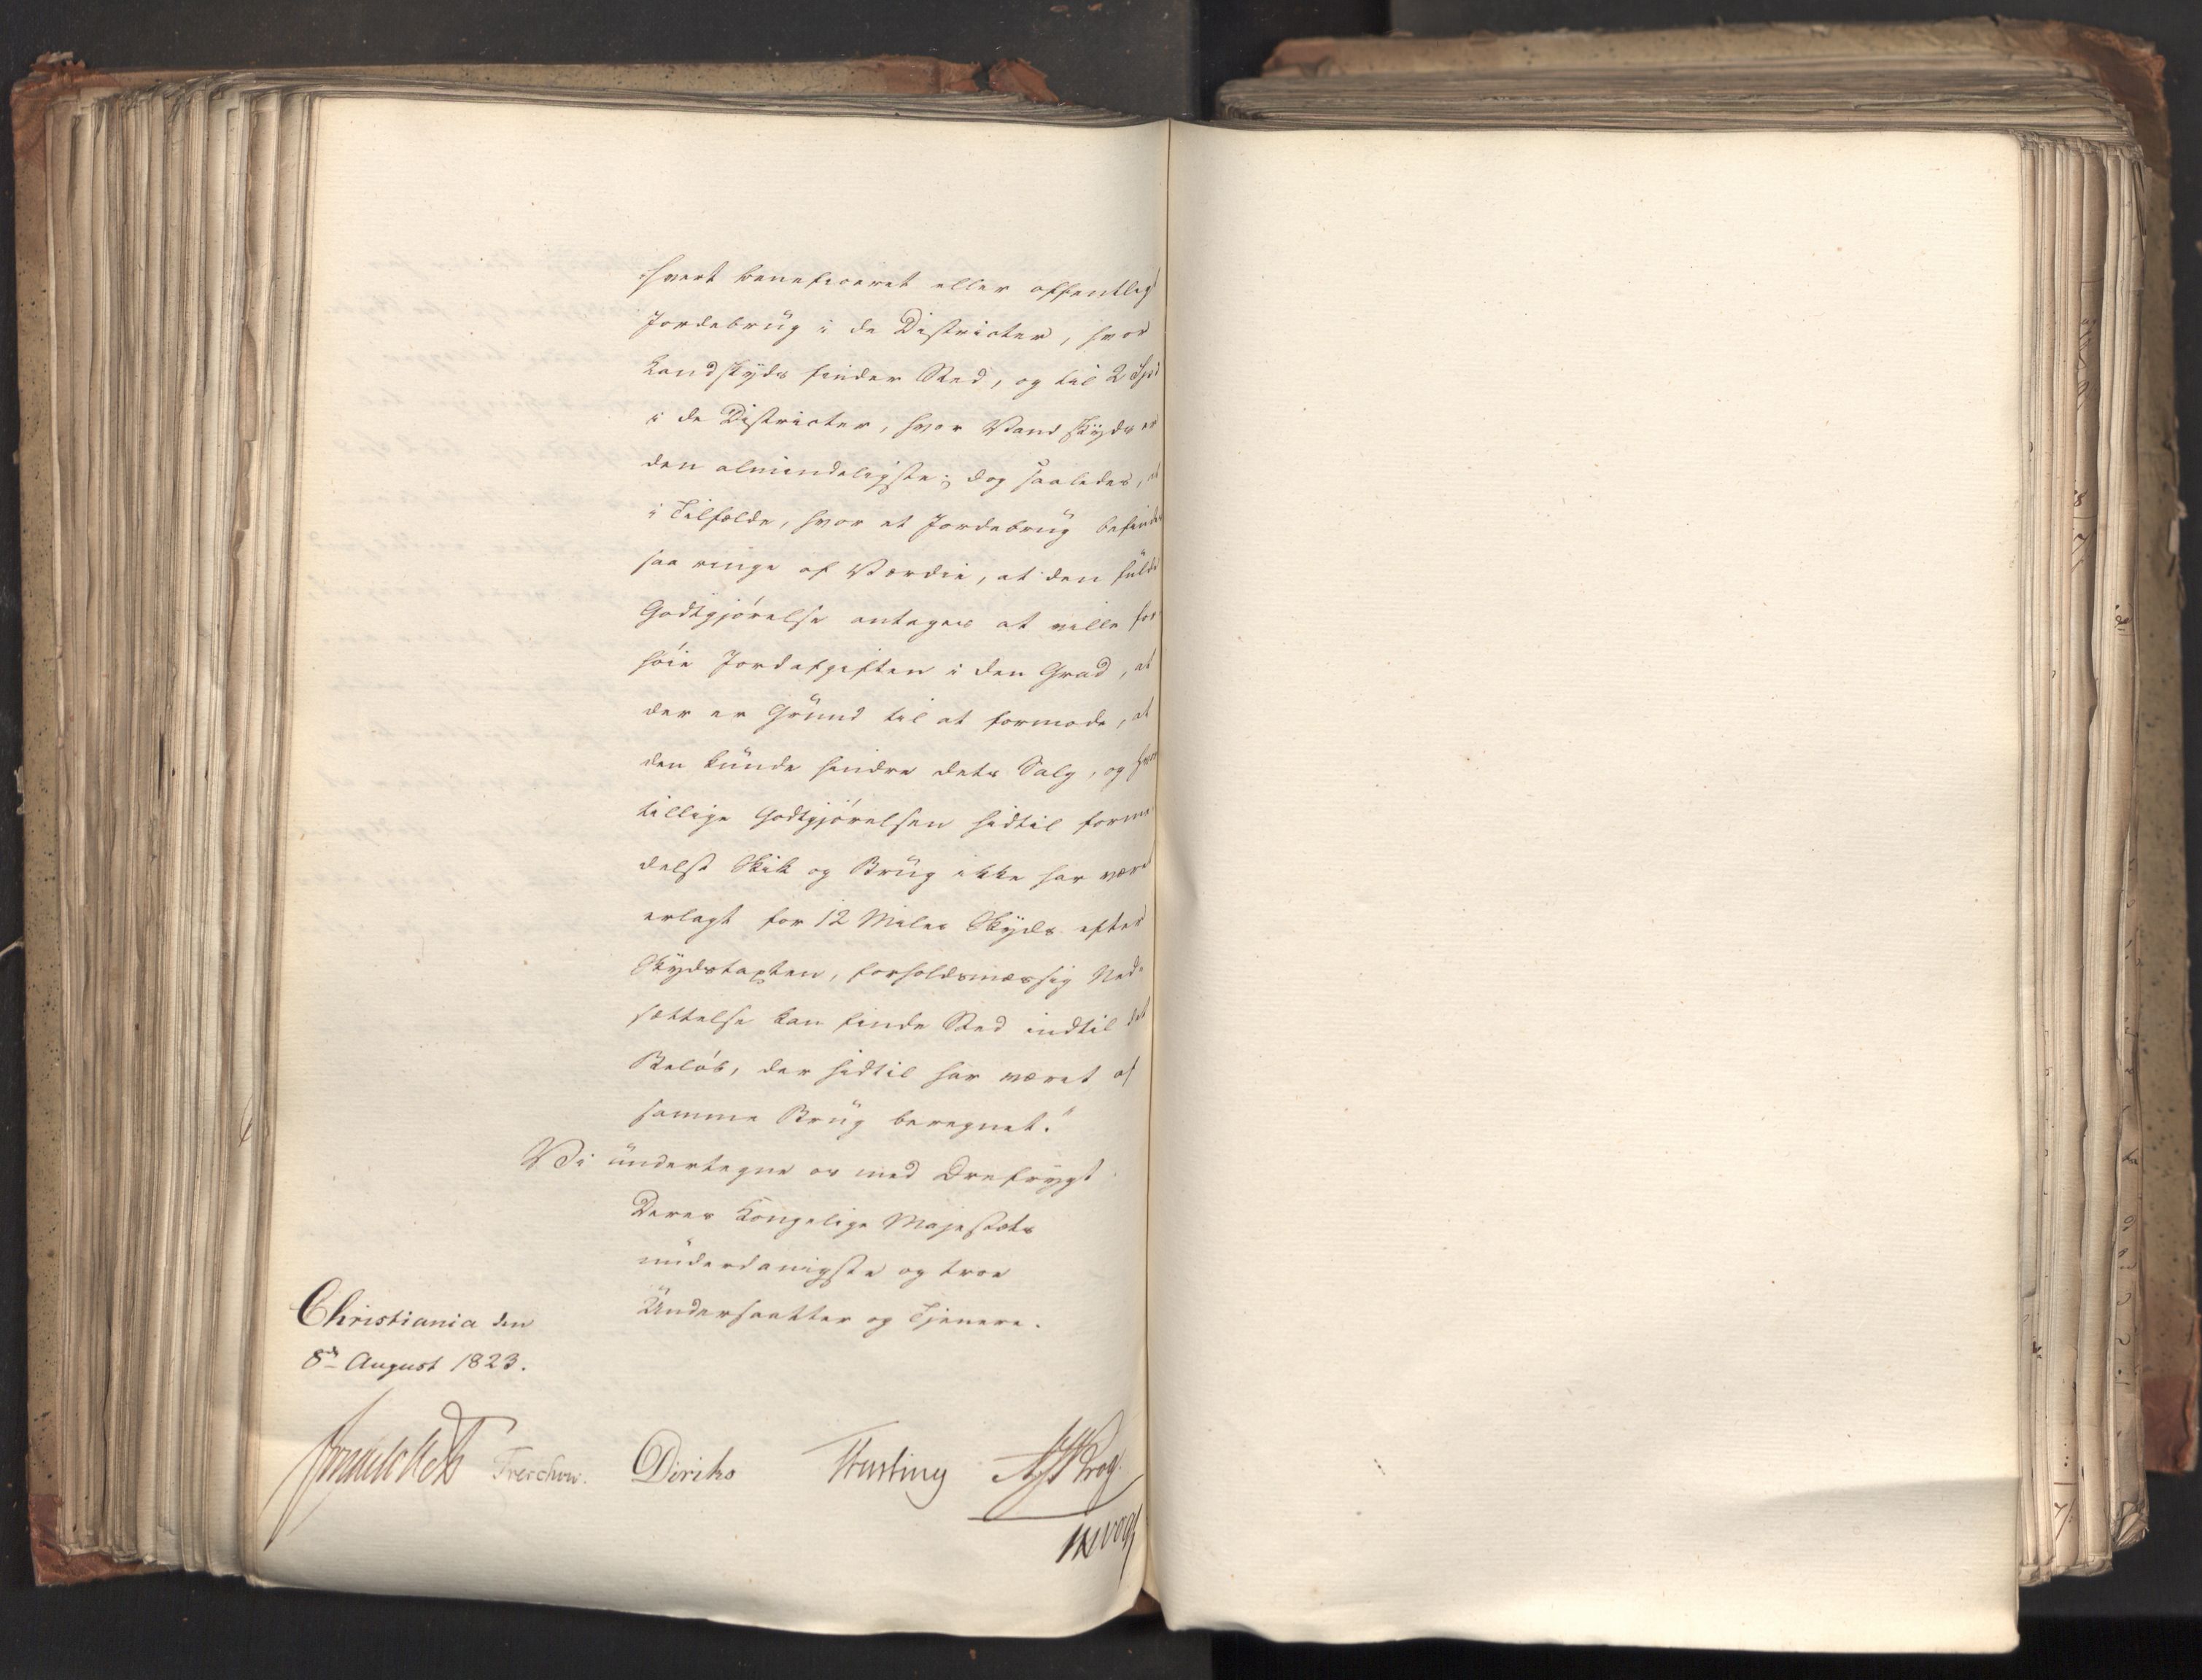 hvert beneficeret eller offentligt
Jordebrug i de Districter, hvor
Landskyds finder Sted, og til 2 Spd
i de Districter, hvor Vandskyds er
den almindeligste; dog saaledes, at
i Tilfælde, hvor et Jordebrug befindes
saa ringe af Værdie, at den fulde
Godtgjörelse antages at ville for-
höie Jordafgiften i den Grad, at
der er Grund til at formode, at
den kunde hindre dets Salg, og hvor
tillige Godtgjörelsen hidtil forme-
delst Skik og Brug ikke har været
erlagt for 12 Miles Skyds efter
Skydstaxten, forholdsmæssig Ned-
sættelse kan finde Sted indtil det
Beløb, der hidtil har været af
samme Brug beregnet."
Vi undertegne os med Ærefrygt
Deres Kongelige Majestæts
underdanigste og troe
Undersaatter og Tjenere.
Christiania den
8de August 1823.
Treschow. Diriks